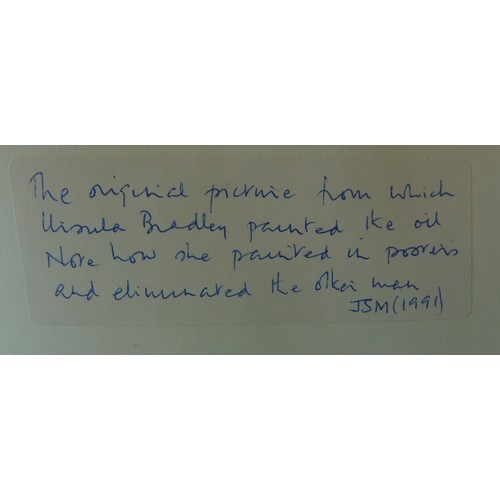 The original picture from which
Ursula Bradley painted the oil
Note how she painted in
and eliminated the other man
JSM (1991)